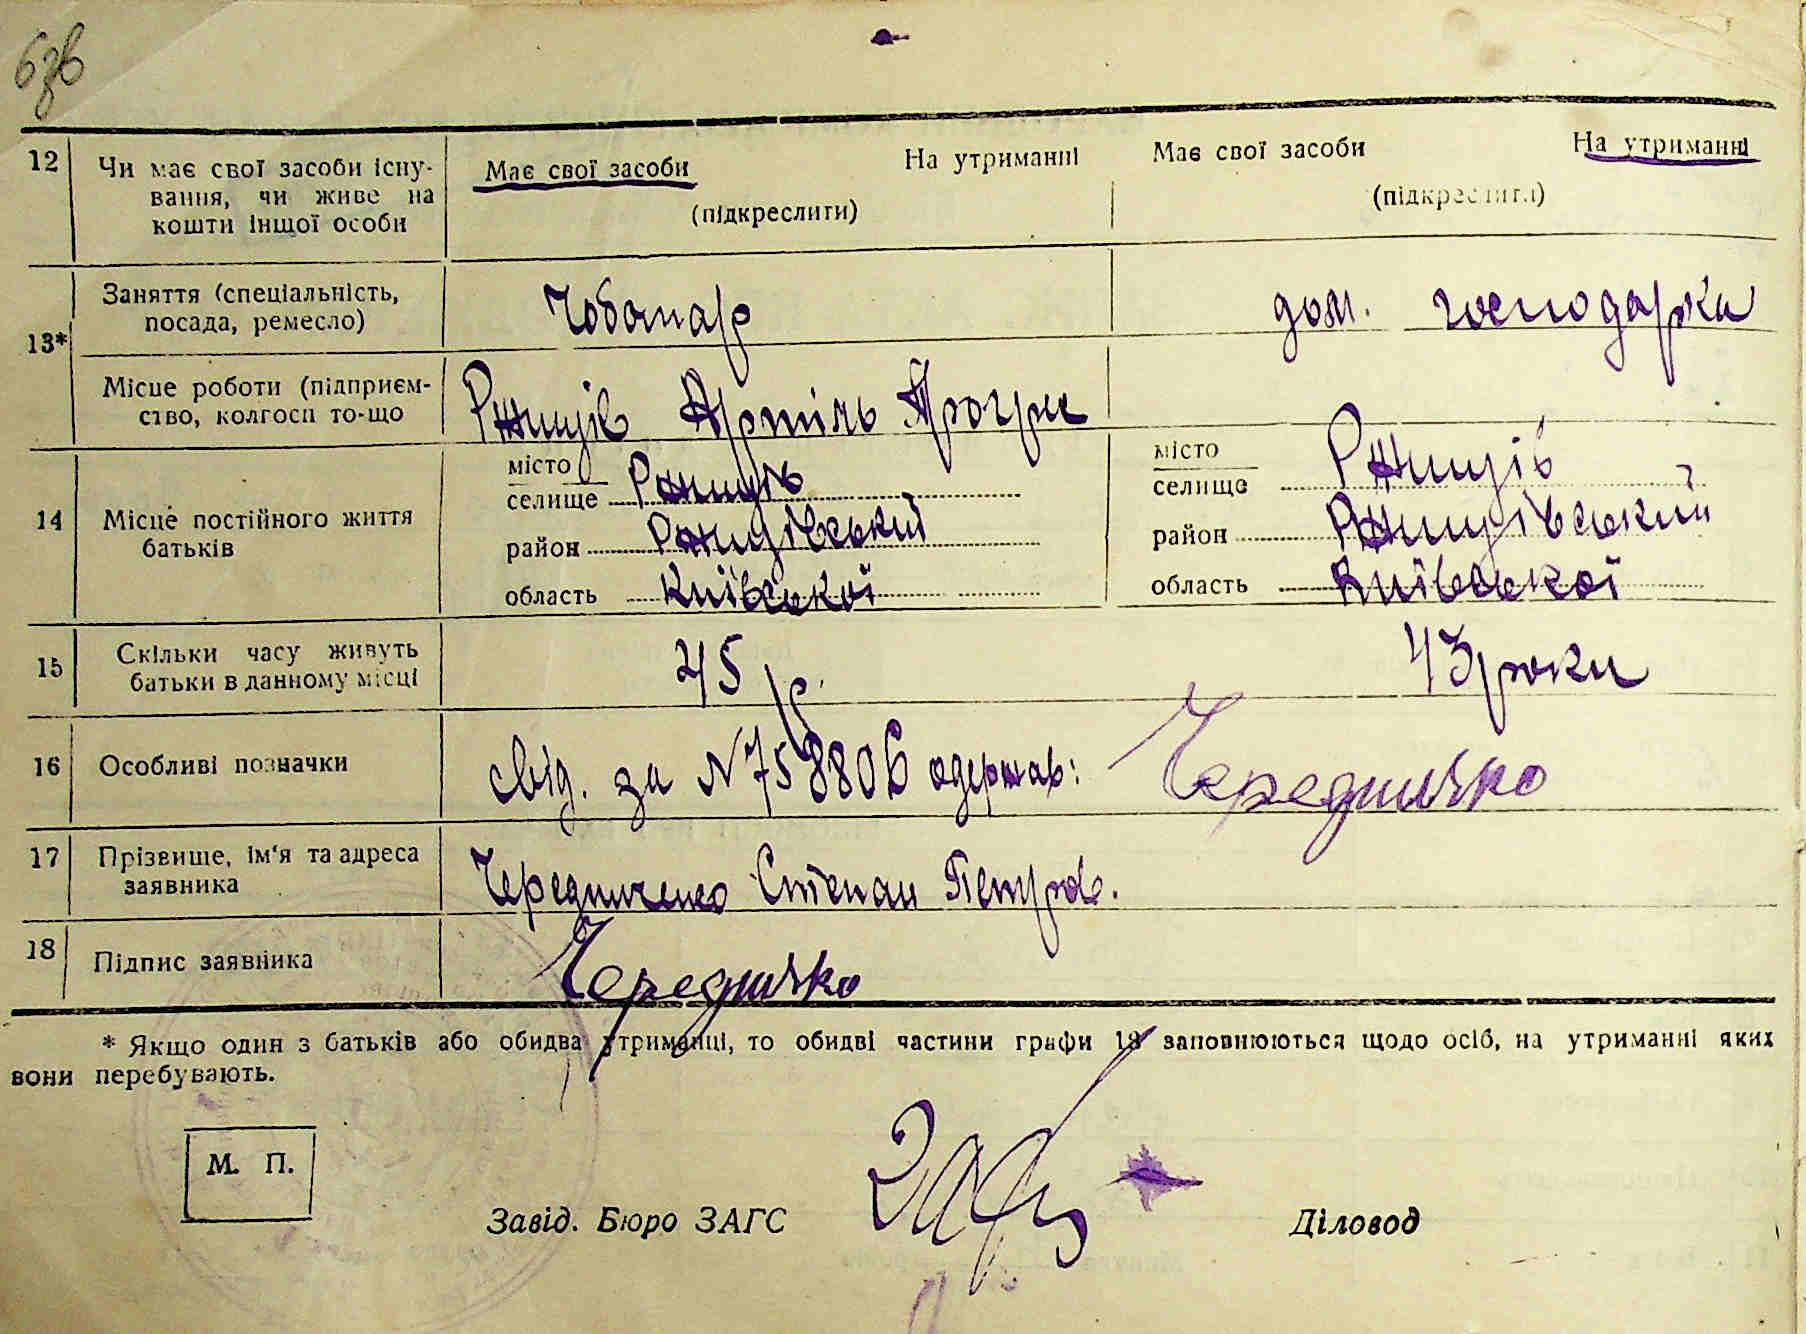 6зв
12 Чи має свої засоби існу- Має свої засоби На утриманні Має свої засоби На утриманні
вання, чи живе на (підкреслити) (підкреслити)
кошти іншої особи
13* Заняття (спеціальність, Чоботар дом. господарка
посада, ремесло)
Місце роботи (підприєм- Ржищів Артіль Прогрес
ство, колгосп то-що
14 Місце постійного життя місто Ржищів місто Ржищів
батьків селище селище
район Ржищівський район Ржищівський
область Київської область Київської
15 Скільки часу живуть 45 р. 43 роки
батьки в данному місці
16 Особливі позначки свід. за N 758806 одержав: Чередничко
17 Прізвище, ім'я та адреса Чередниченко Степан Петров.
заявника
18 Підпис заявника Чередничко
* Якщо один з батьків або обидва утриманці, то обидві частини графи 13 заповнюються щодо осіб, на утриманні яких
вони перебувають.
М. П.
Завід. Бюро ЗАГС Діловод